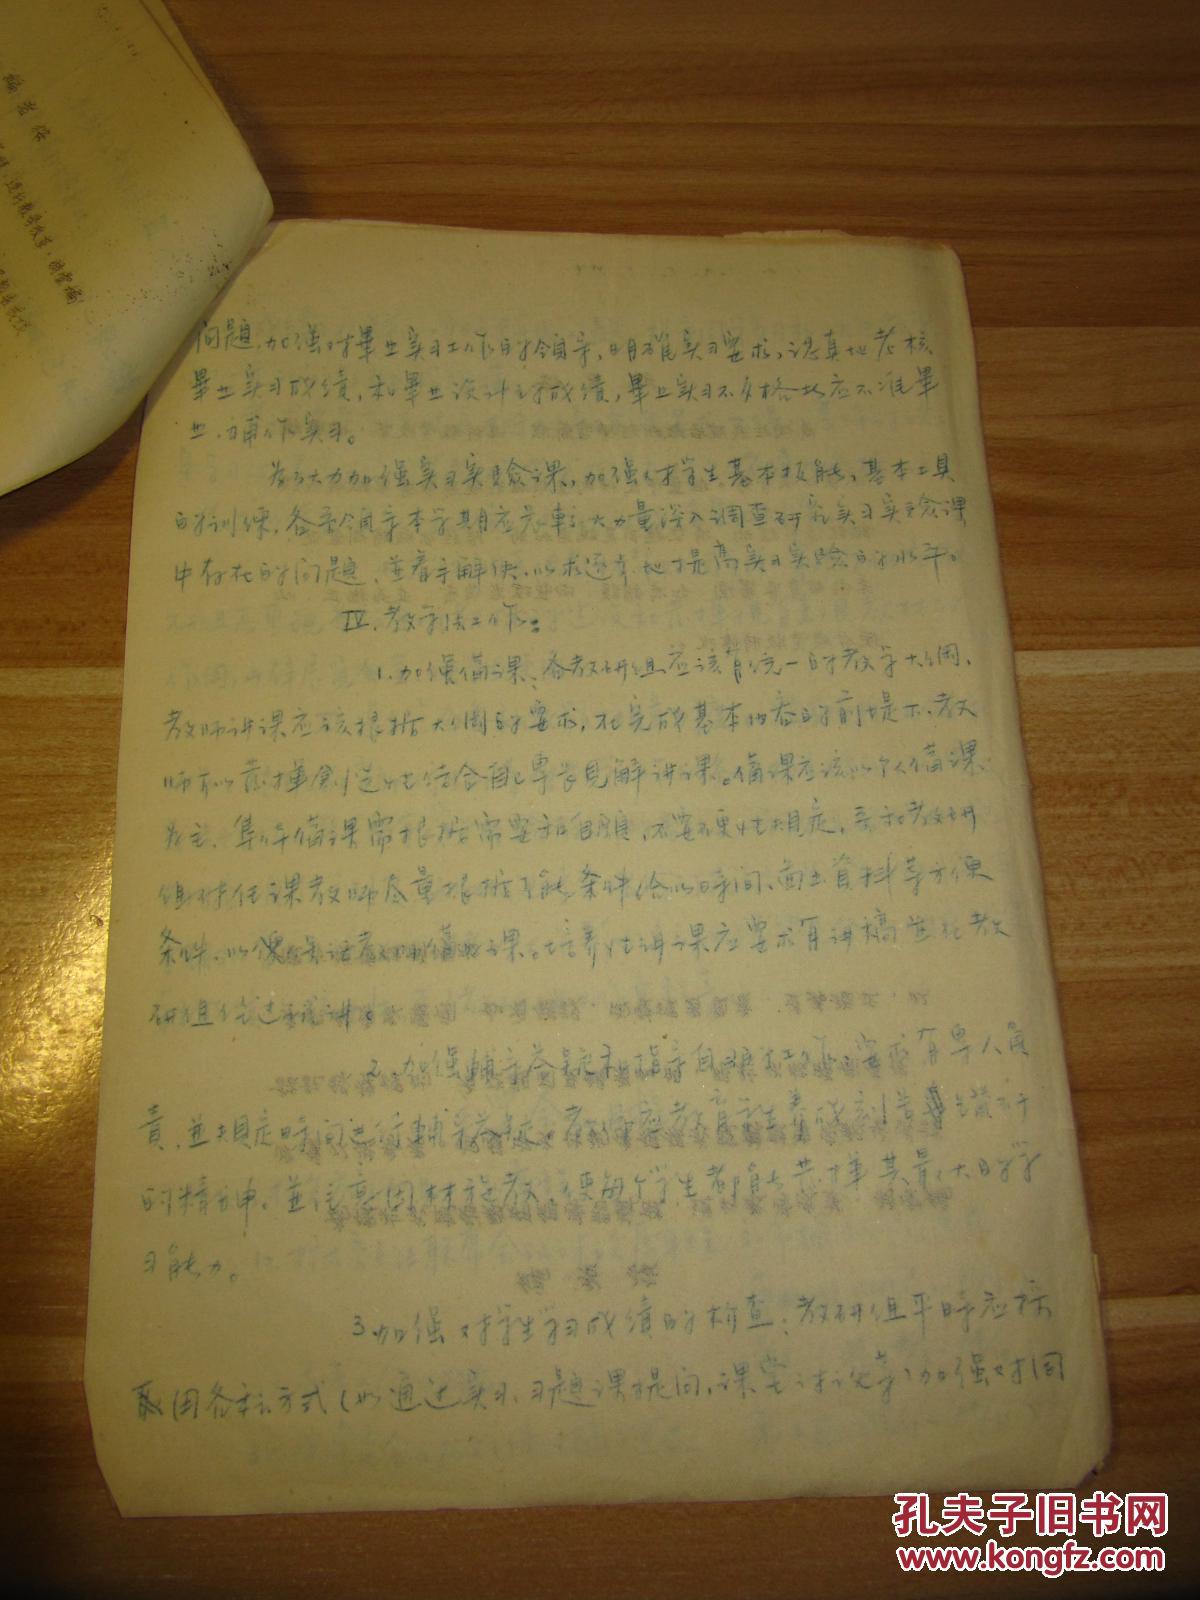 编者保
进行教学改革
问题，加强对畢业实习工作的领导，明确实习要求，认真地考核
畢业实习成绩，和畢业设计的成绩，畢业实习不及格的应不准畢
业，補作实习。
为了大力加强实习实验课，加强对学生基本技能，基本工具
的训练，各系领导本学期应发动大力量深入调查研究实习实验课
中存在的问题，並着手解决，以求逐步地提高实习实验的水平。
IV、教学法工作：
1.加强備课，各教研组应该有统一的教学大纲，
教师讲课应该根据大纲的要求，在完成基本内容的前提下，教
师可以发揮創造性结合自己專长見解讲课。備课应该以个人備课
为主，集体備课需根据需要和自願，不要硬性規定，系和教研
组对任课教师尽量根据可能条件给以時间、图书資料等方便
条件，以便備好课。培养性讲课应要求有讲稿並在教
研组经过试讲。
2.加强輔导答疑和指导自习工作，有專人負
責，並規定時间进行輔导答疑。教师应教育学生養成刻苦鑽研
的精神，並注意因材施教，使每个学生都能发揮其最大的学
习能力。
3.加强对学生学习成绩的检查：教研组平時应採
取用各种方式（如通过实习、习题课提问，课堂讨论等）加强对同
孔夫子旧书网
www.kongfz.com